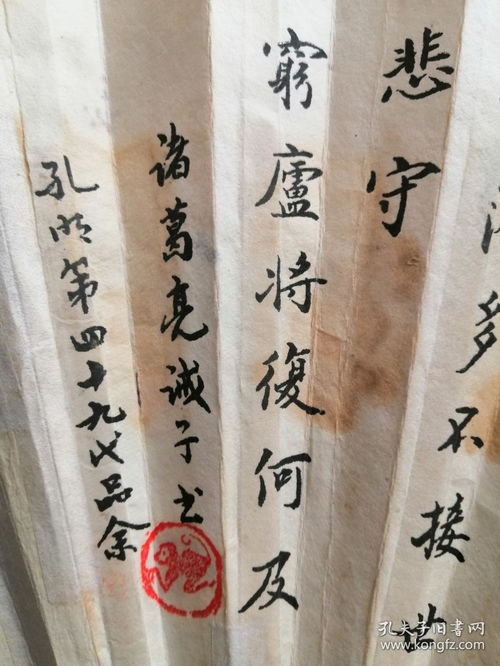 多不接世
悲守
窮廬將復何及
诸葛亮诫子书
孔明第四十九代品余
孔夫子旧书网
www.kongfz.com